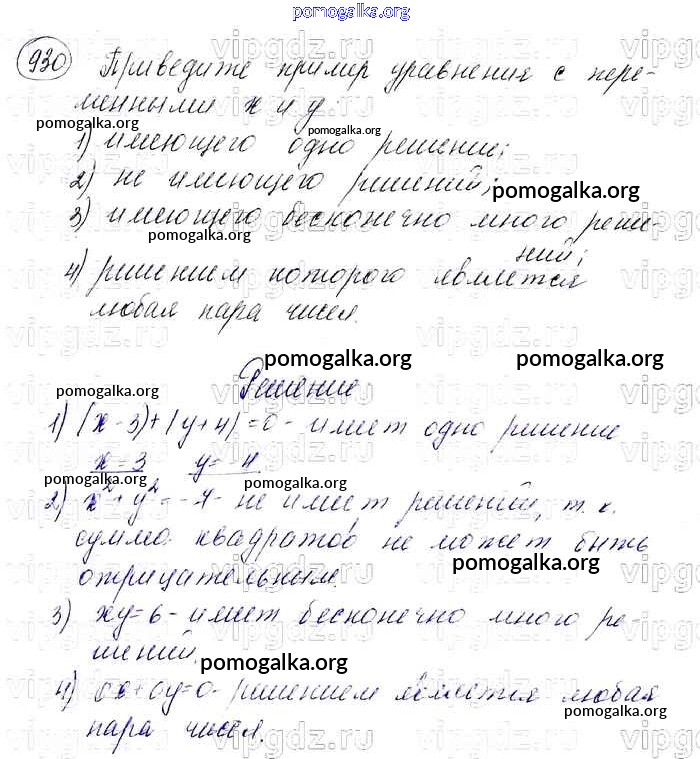 pomogalka.org
930 Приведите пример уравнения с пере-
менными x и y:
pomogalka.org pomogalka.org
1) имеющего одно решение;
2) не имеющего решений;
pomogalka.org
3) имеющего бесконечно много реше-
ний;
pomogalka.org
4) решением которого является
любая пара чисел.
pomogalka.org pomogalka.org
Решение
pomogalka.org
1) |x-3|+|y+4|=0- имеет одно решение
x=3 y=-4
pomogalka.org pomogalka.org
2) x²+y²=-7- не имеет решений, т. к.
сумма квадратов не может быть
pomogalka.org
отрицательным.
3) xy=6- имеет бесконечно много ре-
шений.
pomogalka.org
4) 0x+0y=0- решением является любая
пара чисел.
pomogalka.org pomogalka.org
vipgdz.ru